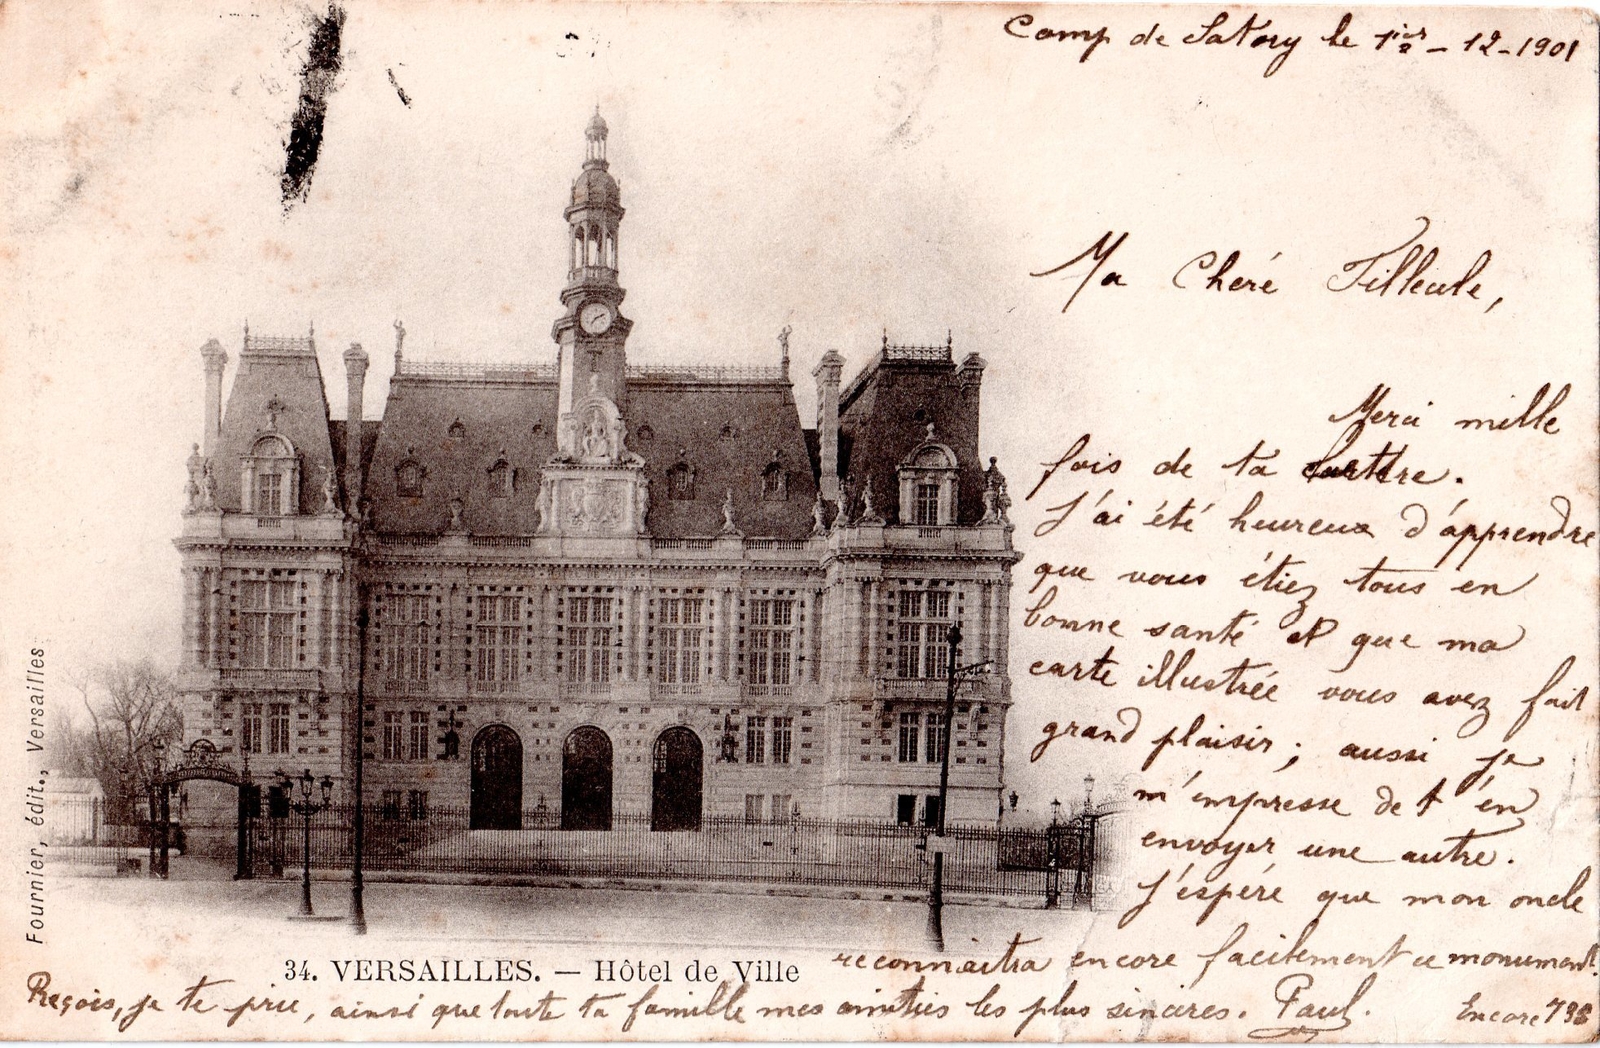 Camp de Satory le 1ier - 12 - 1901
Ma Cheré Filleule,
Merci mille
fois de ta lettre.
J'ai été heureux d'apprendre
que vous étiez tous en
bonne santé et que ma
carte illustrée vous avez fait
grand plaisir ; aussi je
m'empresse de t'en
envoyer une autre.
J'espére que mon oncle
reconnaitra encore facilement ce monument.
Reçois, je te prie, ainsi que toute ta famille mes amitiés les plus sincères. Paul.
Encore 735
34. VERSAILLES. — Hôtel de Ville
Fournier, édit., Versailles